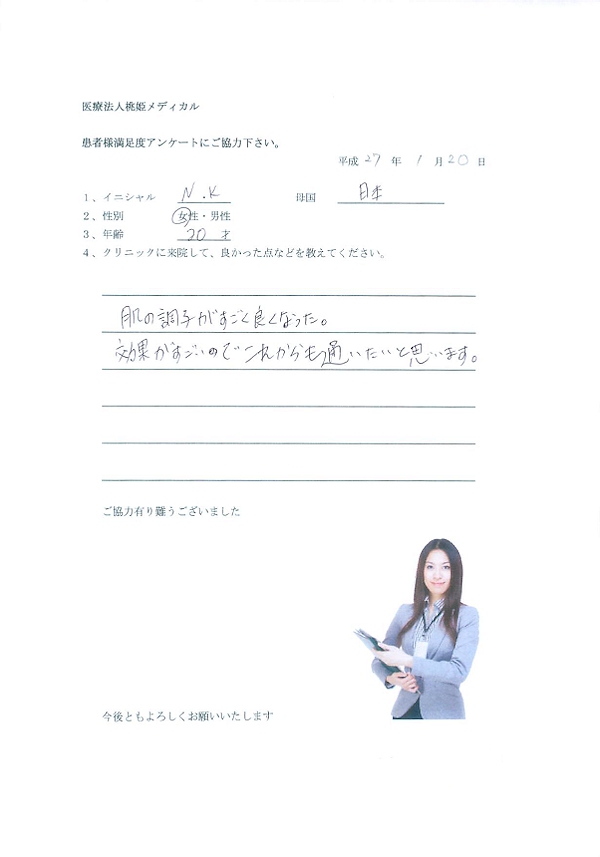 医療法人桃姫メディカル
患者様満足度アンケートにご協力下さい。
平成 27 年 1 月 20 日
1、イニシャル N.K 母国 日本
2、性別 女性・男性
3、年齢 20 才
4、クリニックに来院して、良かった点などを教えてください。
肌の調子がすごく良くなった。
効果がすごいのでこれからも通いたいと思います。
ご協力有り難うございました
今後ともよろしくお願いいたします